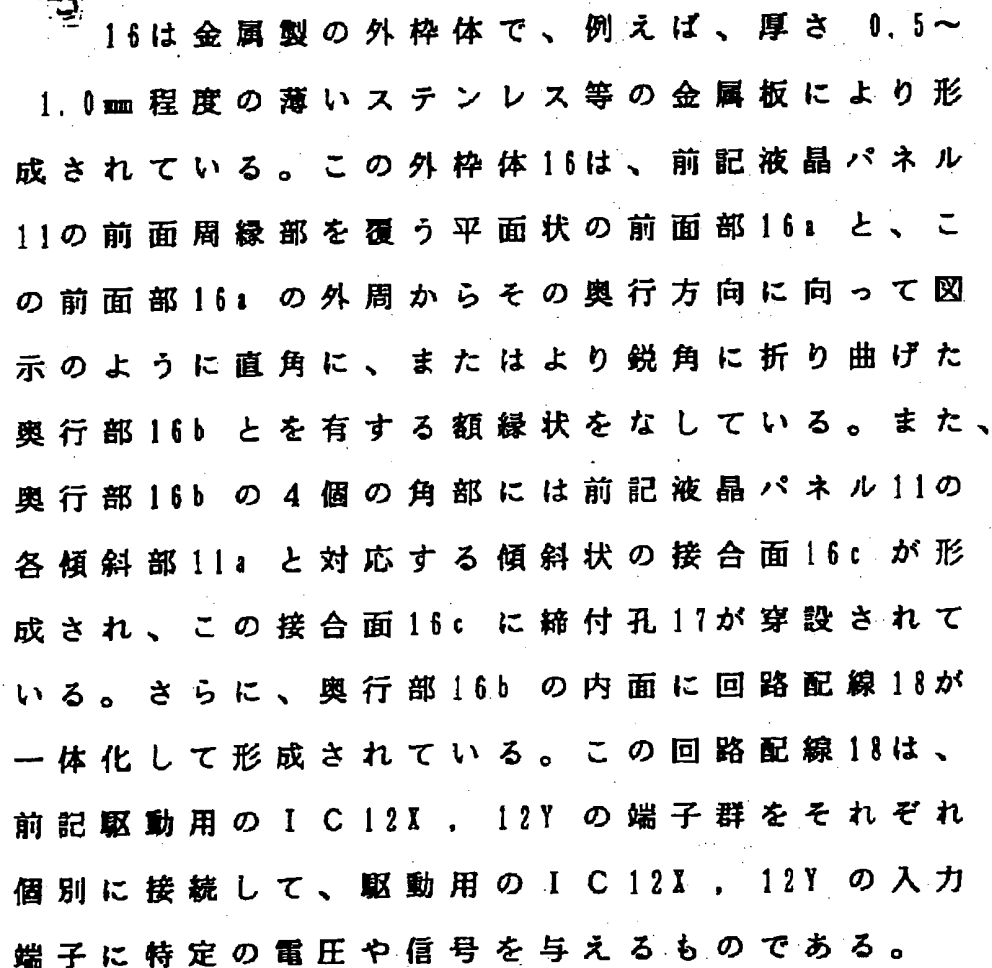 16は金属製の外枠体で、例えば、厚さ 0.5～
1.0mm程度の薄いステンレス等の金属板により形
成されている。この外枠体16は、前記液晶パネル
11の前面周縁部を覆う平面状の前面部16a と、こ
の前面部16a の外周からその奥行方向に向って図
示のように直角に、またはより鋭角に折り曲げた
奥行部16b とを有する額縁状をなしている。また、
奥行部16b の4個の角部には前記液晶パネル11の
各傾斜部11a と対応する傾斜状の接合面16c が形
成され、この接合面16c に締付孔17が穿設されて
いる。さらに、奥行部16b の内面に回路配線18が
一体化して形成されている。この回路配線18は、
前記駆動用のIC12X , 12Y の端子群をそれぞれ
個別に接続して、駆動用のIC12X , 12Y の入力
端子に特定の電圧や信号を与えるものである。